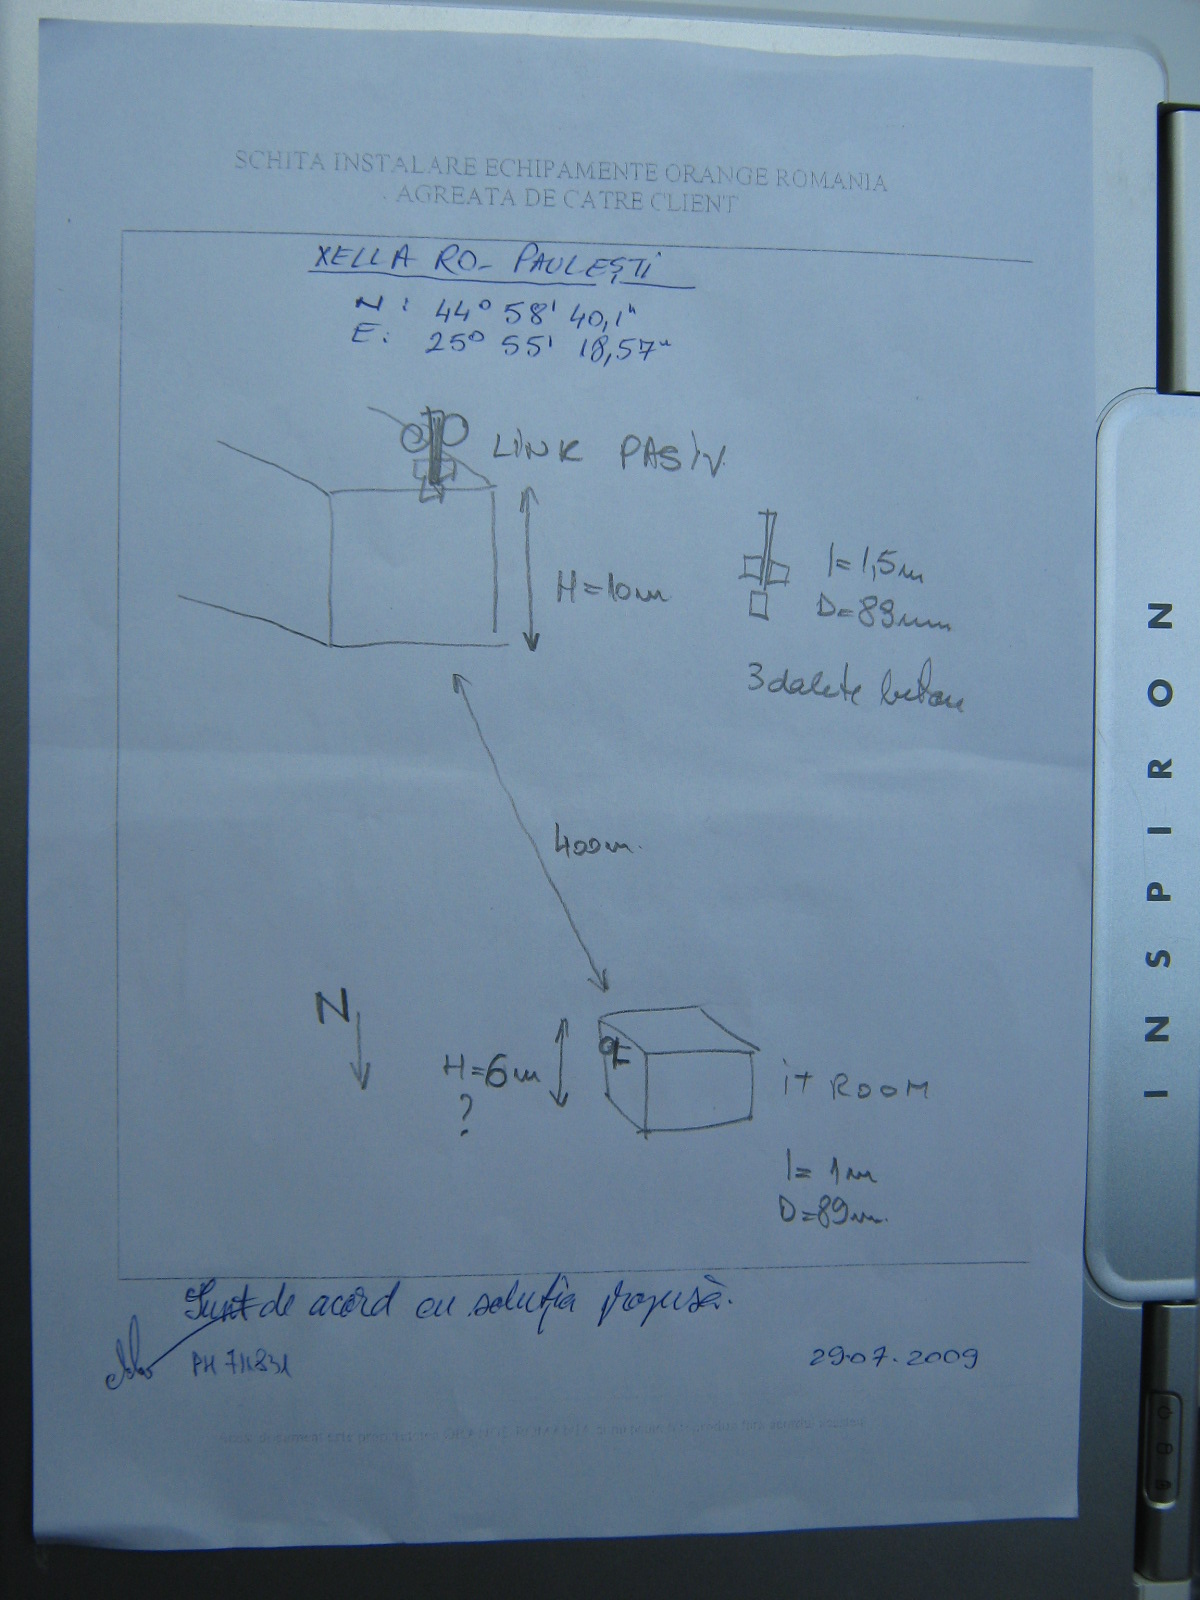 SCHITA INSTALARE ECHIPAMENTE ORANGE ROMANIA
AGREATA DE CATRE CLIENT
XELLA RO- PAULEȘTI
N: 44° 58' 40,1"
E: 25° 55' 18,57"
LINK PASIV
H=10m
l=1,5m
D=89mm
3 dalete beton
400m.
N
H=6m
?
it ROOM
l= 1m
D=89m.
Sunt de acord cu soluția propusă.
29.07.2009
INSPIRON